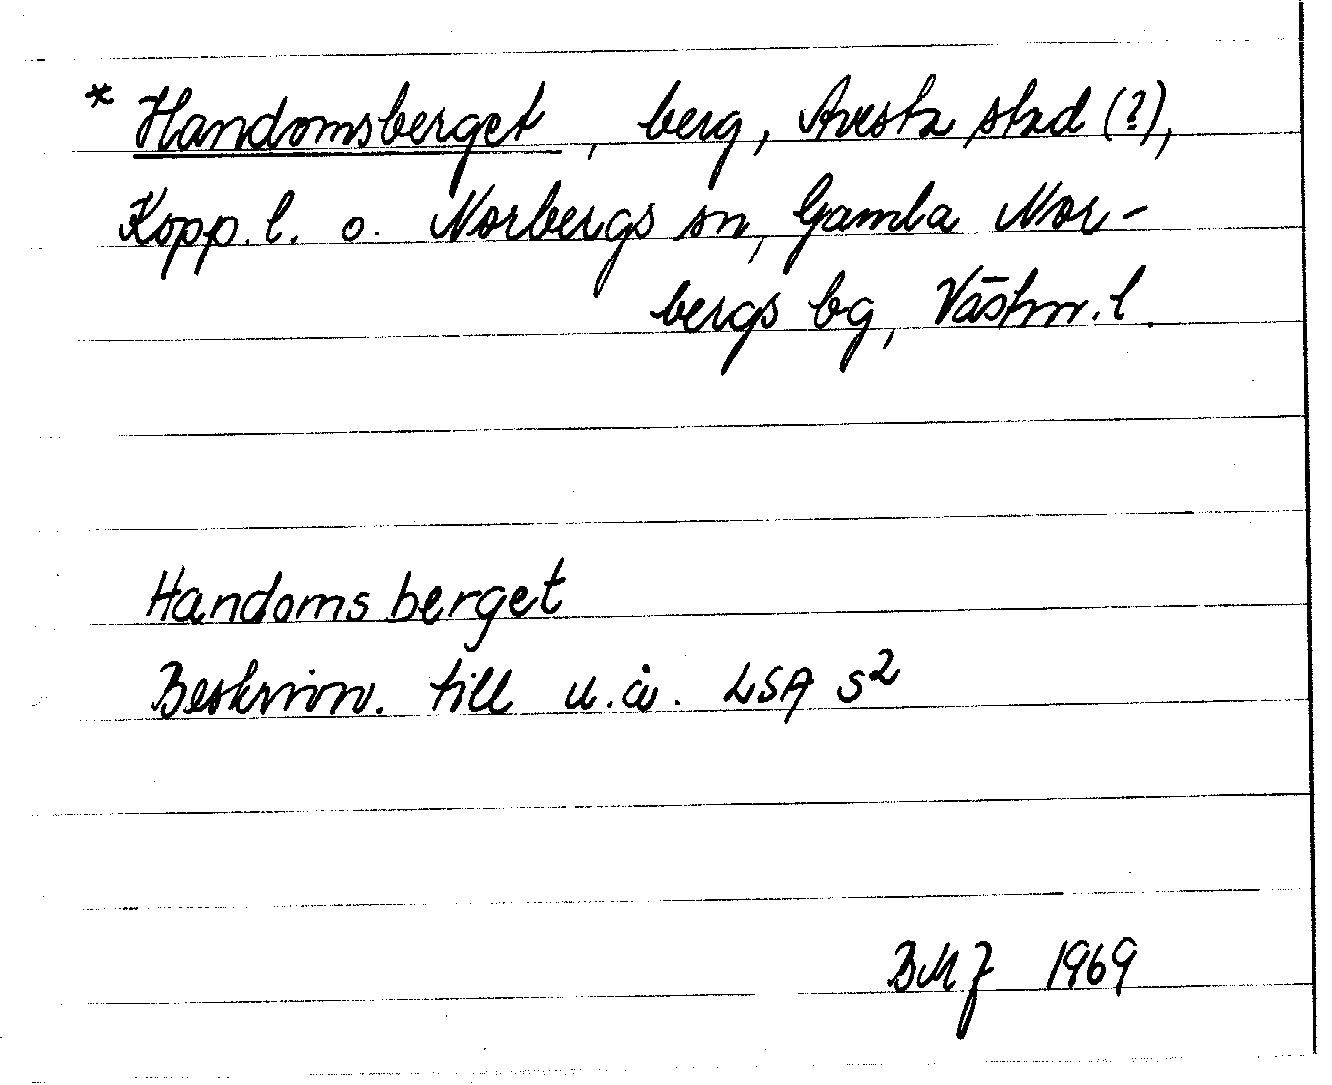 * Handomsberget, berg, Avesta stad (?),
Kopp. l. o. Norbergs sn, Gamla Nor-
bergs bg, Västm. l.
Handomsberget
Beskrivn. till u.å. LSA S²
BMJ 1969